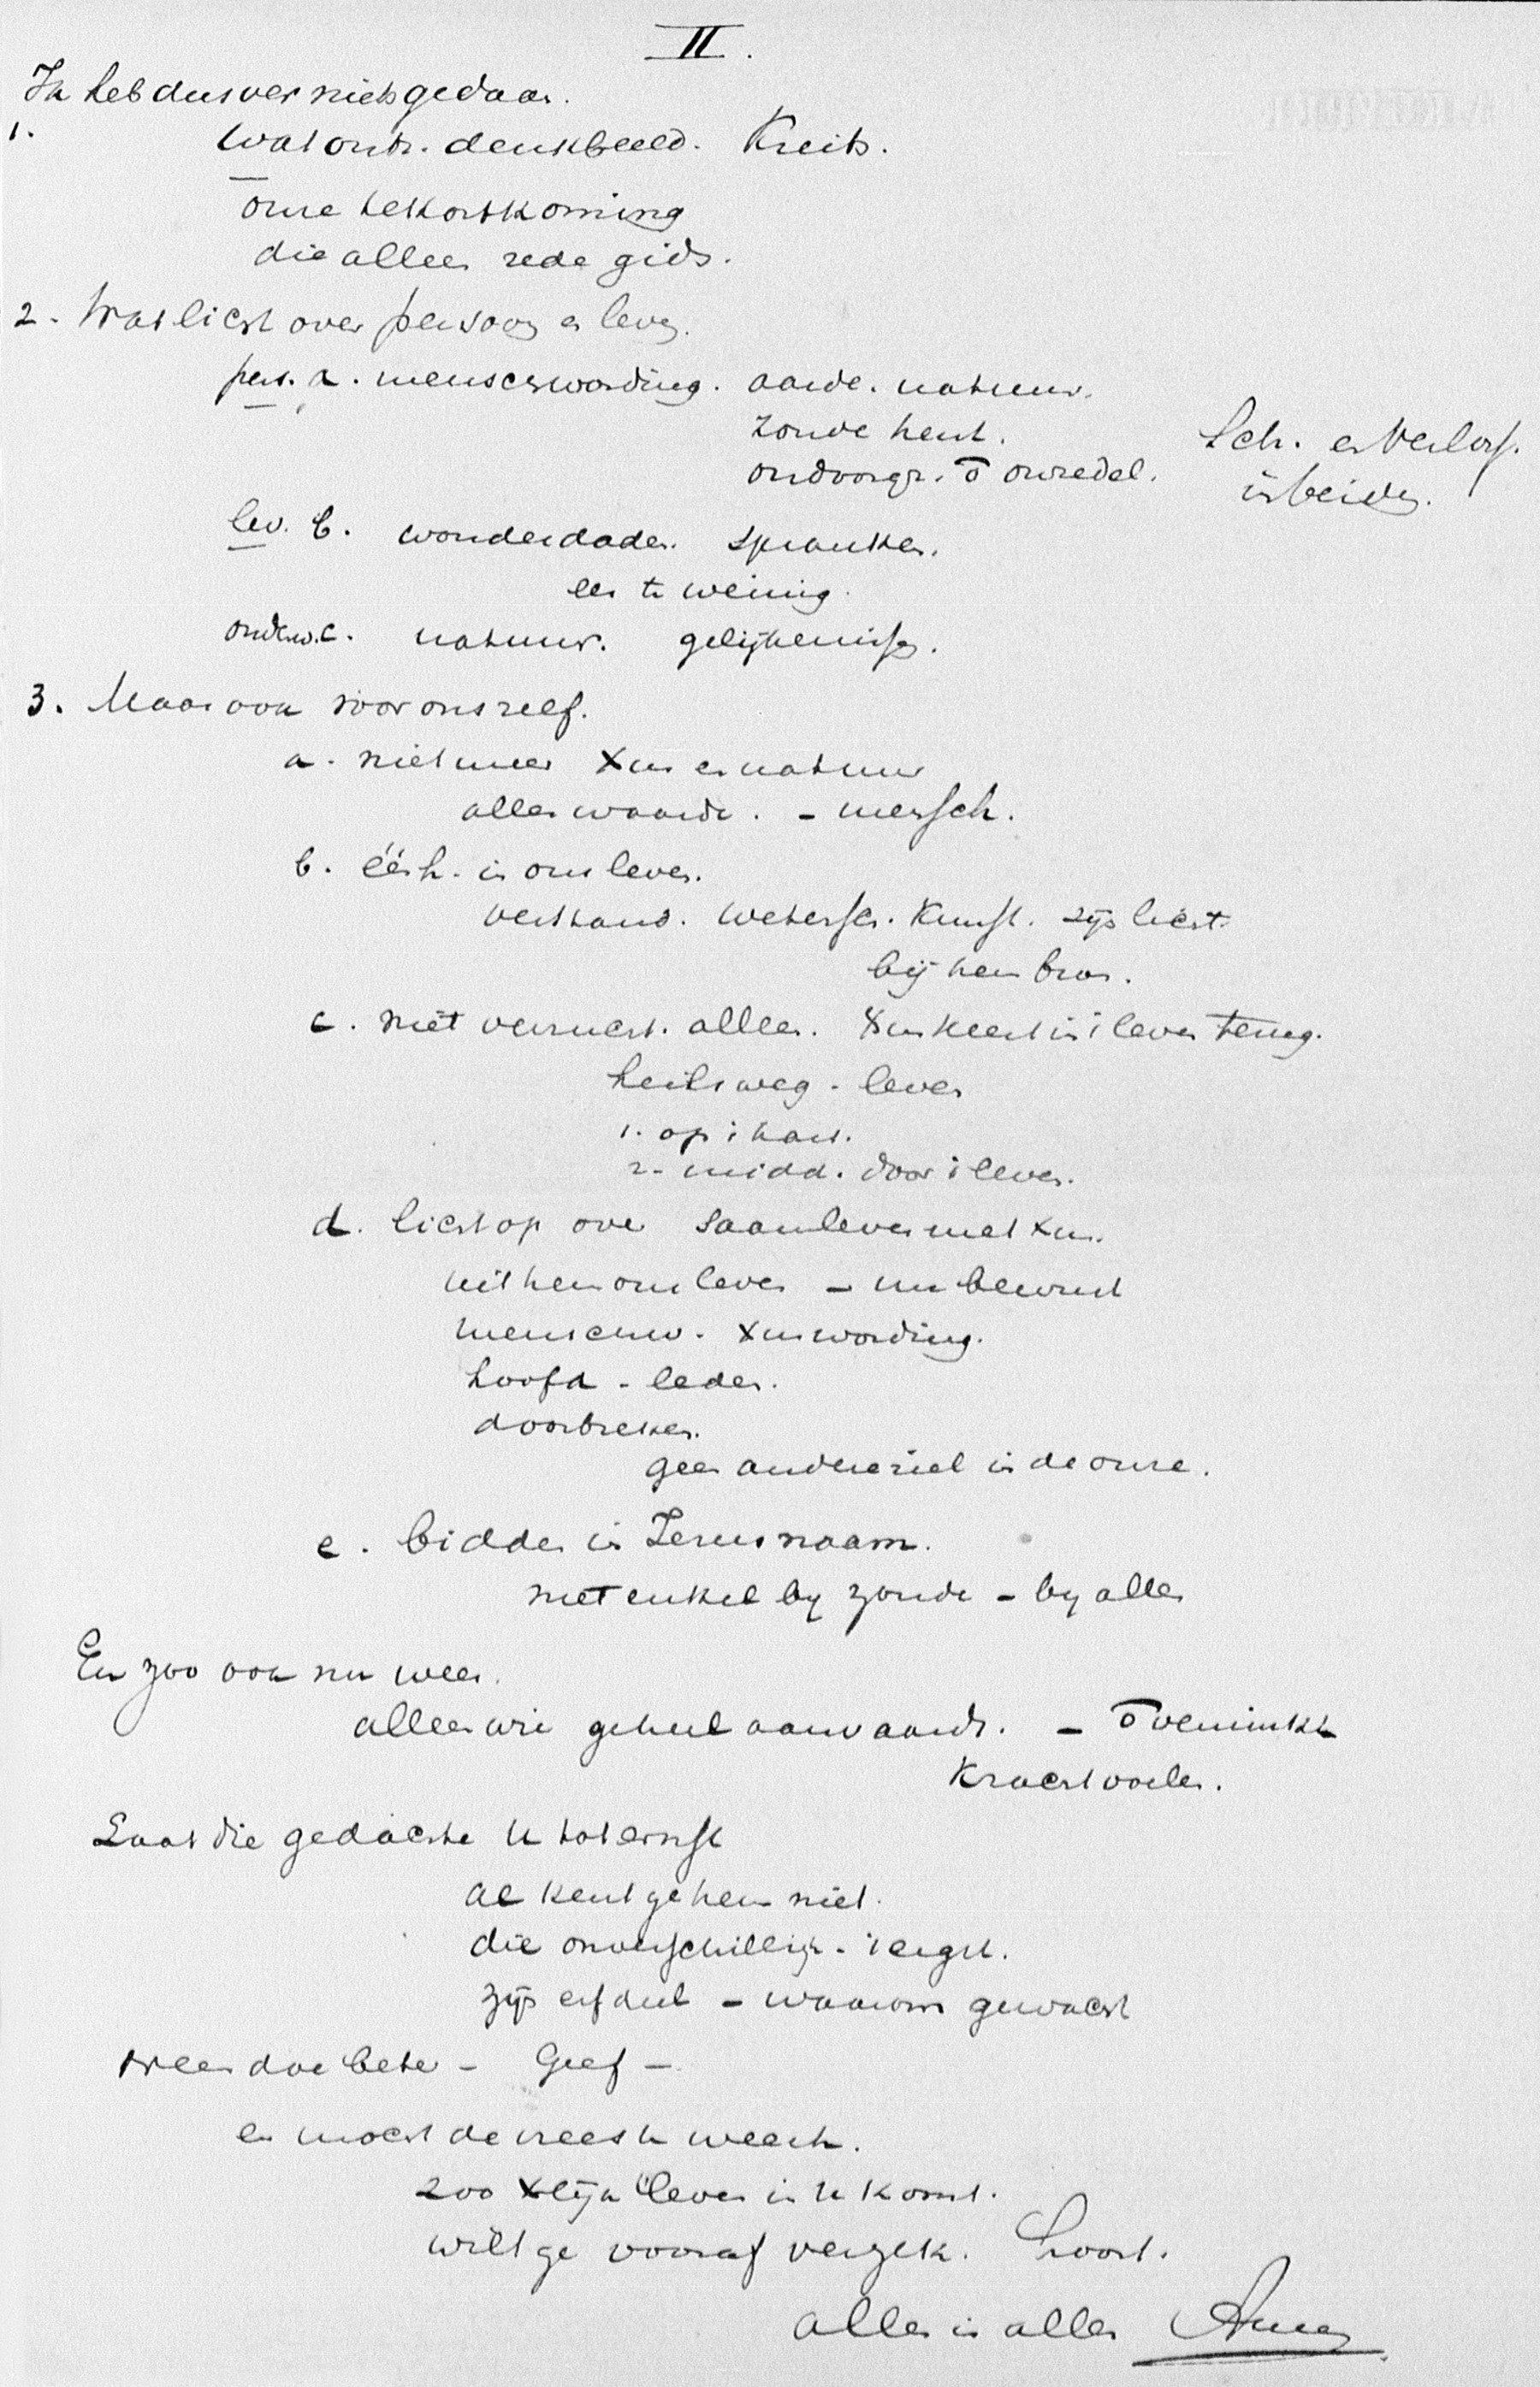 II.
Ik heb dusver niets gedaan.
1. Wat ontr. denkbeeld. Kreits.
onze tekortkoming
die alleen rede gids.
2. Wat licht over persoon en leven.
pers. a. menschwording. aarde. natuur.
zonde kent.
ondoorgr. o onredel.
Sch. en Verloss.
in beiden.
lev. b. wonderdaden. spranken.
een te weinig.
onderw. c. natuur. gelijkeniss.
3. Maar ook voor ons zelf.
a. niet meer Xus en natuur
alles waarde. - mensch.
b. éénh. in ons leven.
verstand. wetensch. Kunst. zijn licht
bij hem bron.
c. niet vernuft. alleen. Xus keert in 't leven terug.
heilsweg - leven
1. op 't hart.
2. midd. door 't leven.
d. licht op ons saamleven met Xus.
uit hem ons leven - nu bewust
menschw. Xuswording.
hoofd - leden.
doorbreken.
geen andere ziel in de onze.
e. bidden in Jezus naam.
niet enkel bij zonde - bij alles
En zoo ook nu weer.
alleen wie geheel aanvaardt. - o verminkt
Kracht voelen.
Laat die gedachte U tot ernst
al kent ge hem niet.
die onverschillig - 't ergst.
zijn erfdeel - waarom gewacht
weer doe beter - Geef -
en mocht de vrees U weerh.
zoo Xelijk leven in U komt.
wilt ge vooraf verzek. hoort.
alles in allen Amen